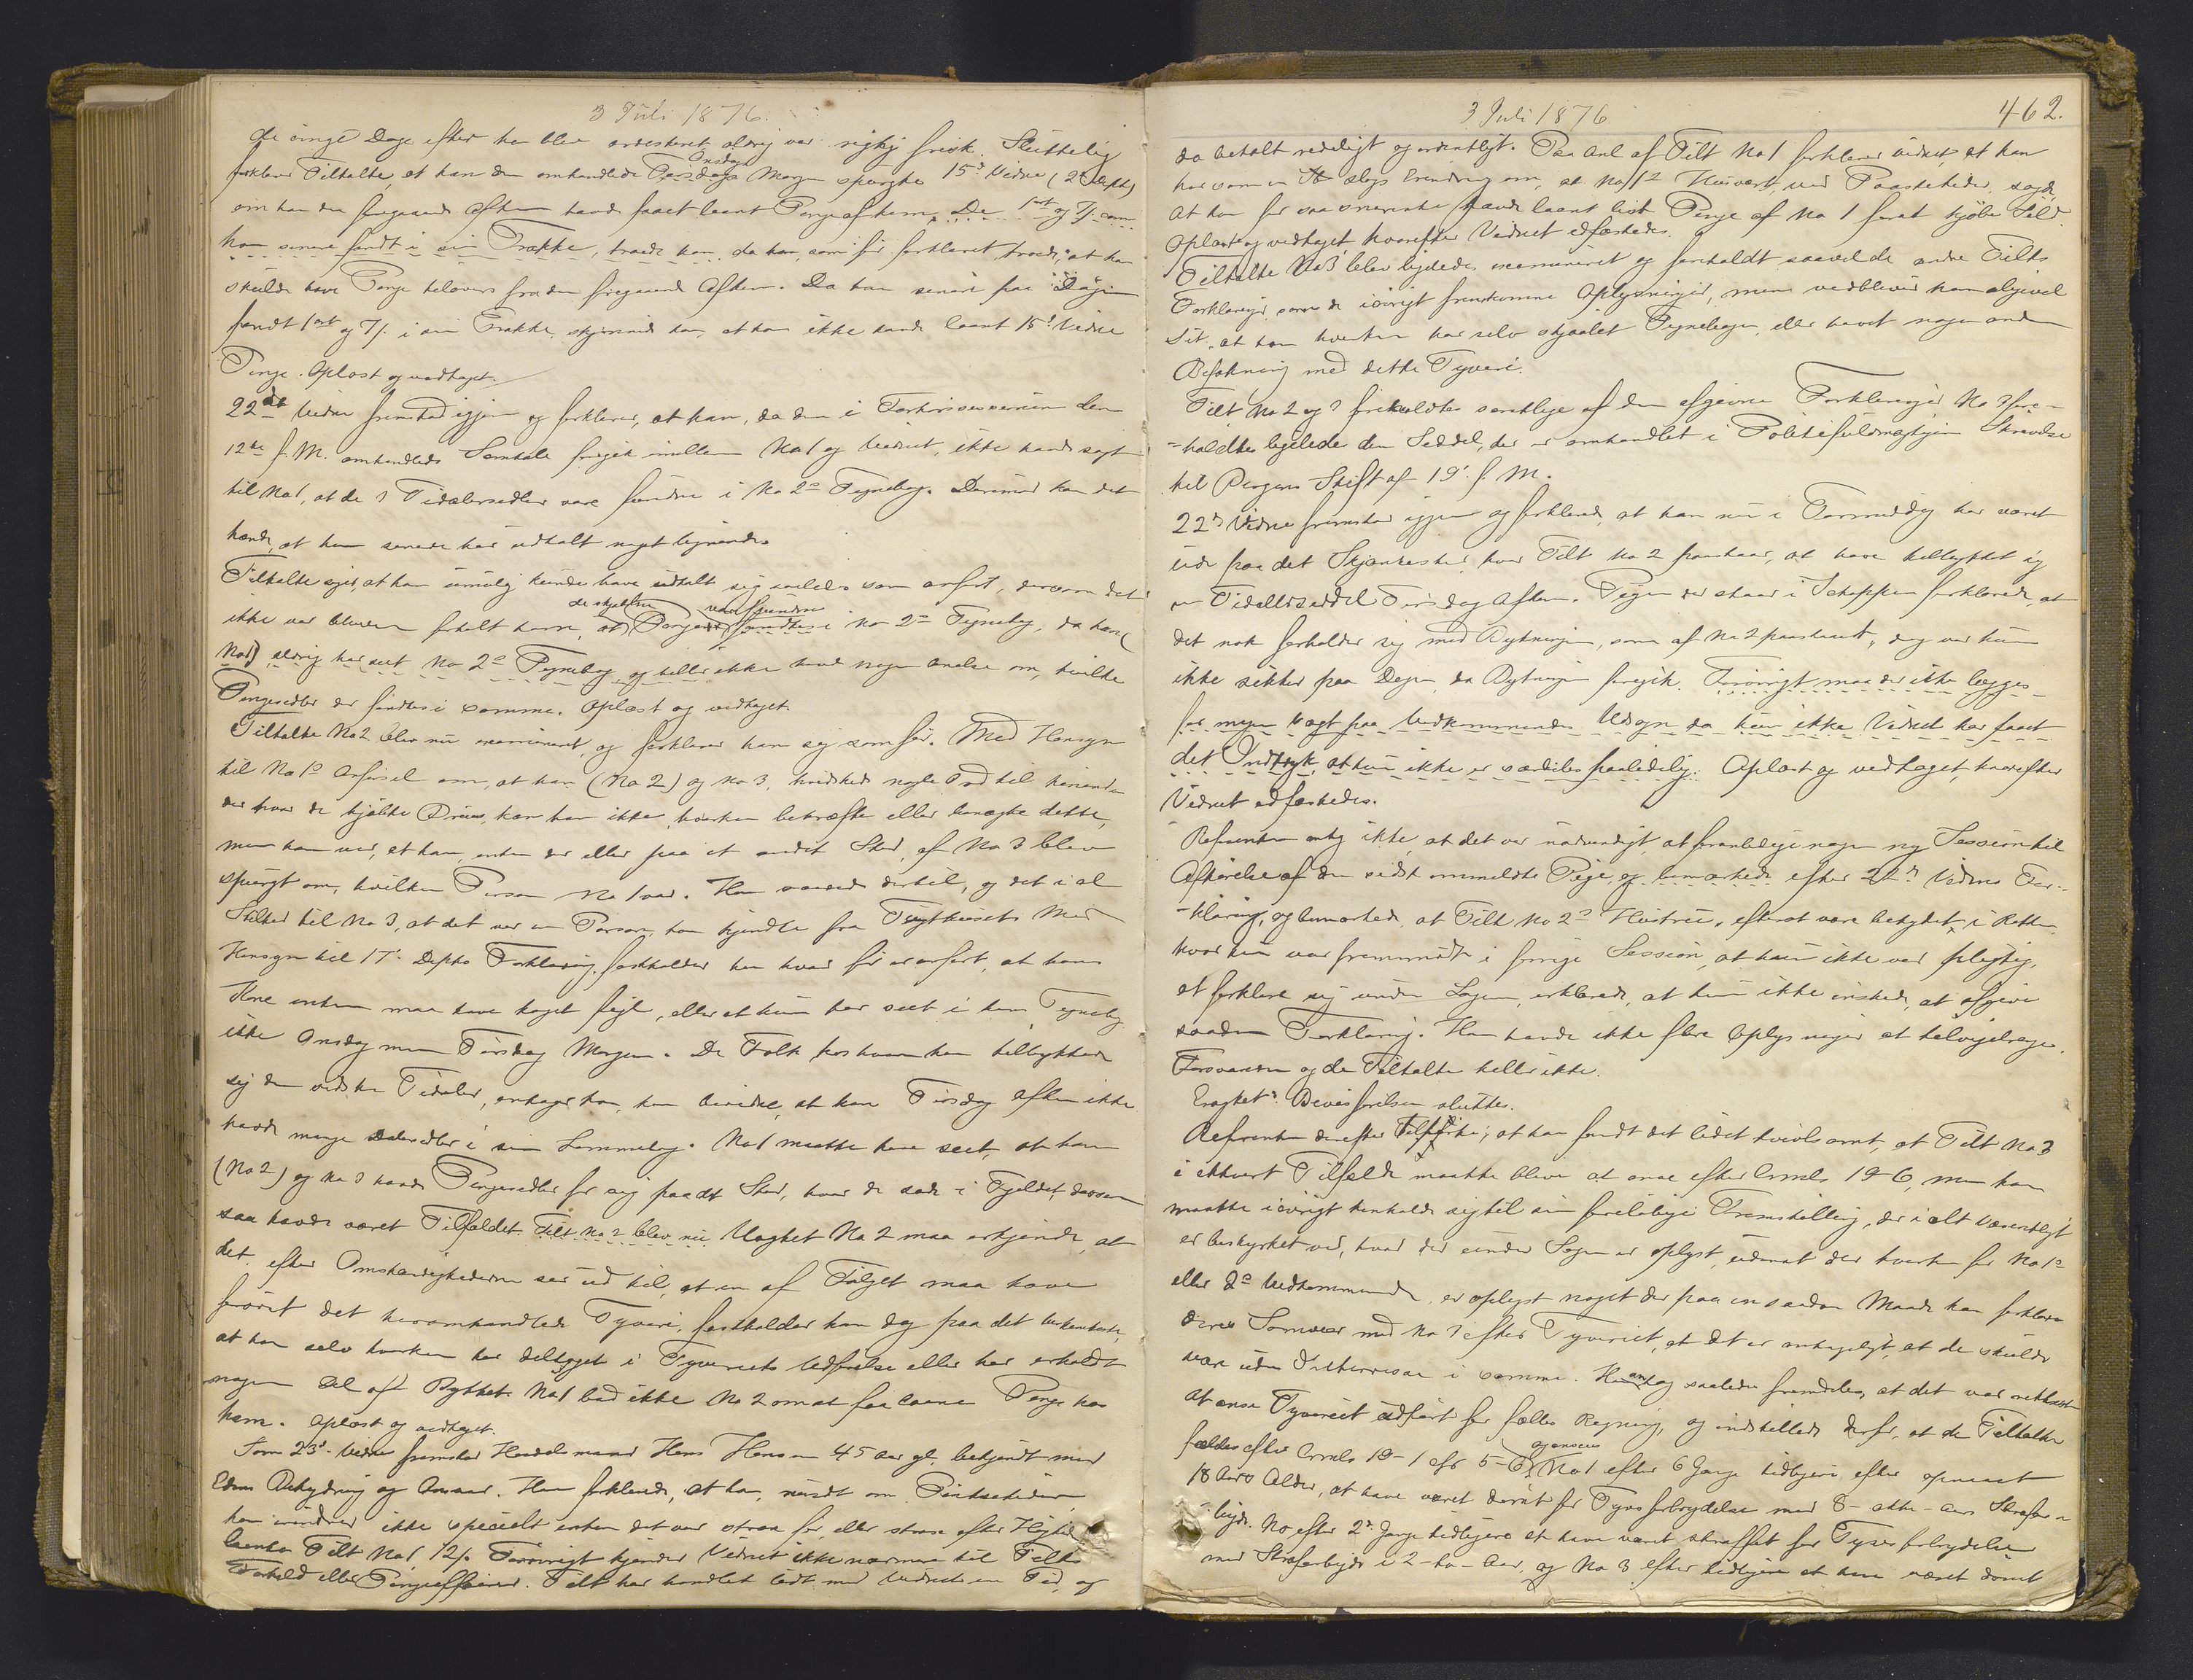 3 Juli 1876.
de øvrige Dage efter han blev arresteret aldrig var rigtig frisk. Sluttelig
forklarer Tiltalte, at han den omhandlede Tirsdags Onsdags Morgen spurgte 15de Vidne
om han den foregaaende Aften havde faaet laant Penge af ham. De 1 ort og 7 s. som
han senere fandt i sin Frakke, troede han, da han, som før forklaret, troede, at han
skulde have Penge tilovers fra den foregaaende Aften. Da han senere paa Dagen
fandt 1 ort og 7 s. i sin Frakke, skjønnede han, at han ikke havde laant 15de Vidne
Penge. Oplæst og vedtaget.
22det Vidne fremstod igjen og forklarer, at han, da den i Forhørssessionen den
12te f. M. omhandlede Samtale foregik imellem No 1 og Vidnet, ikke havde sagt
til No 1, at de 3 Tidalersedler vare fundne i No 2s Tegnebog. Derimod kan det
hænde, at han senere har udtalt noget lignende.
Tiltalte siger, at han umulig kunde have udtalt sig saaledes som anført, dersom det
ikke var bleven fortalt ham, at de stjaalne Penge var fundne fandtes i No 2s Tegnebog, da han
No 1) aldrig har seet No 2s Tegnebog og heller ikke havde nogen Anelse om, hvilke
Pengesedler der fandtes i samme. Oplæst og vedtaget.
Tiltalte No 2 blev nu examineret, og forklarer han sig som før. Med Hensyn
til No 1s Anførsel om, at han (No 2) og No 3, hviskede nogle Ord til hinanden
der hvor de kjøbte Druer, kan han ikke hverken bekræfte eller benægte dette,
men han ved, at han, enten der eller paa et andet Sted, af No 3 blev
spurgt om, hvilken Person No 1 var. Han svarede dertil, og det i al
Stilhed til No 3, at det var en Person, han kjendte fra Tugthuset. Med
Hensyn til 17de Depts Forklaring, fastholder han hvad før er anført, at hans
Kone enten maa have taget feil, eller at hun har seet i hans Tegnebog
ikke Onsdag men Tirsdag Morgen. De Folk, hos hvem han tilbyttede
sig den Tidaler, antager han, kan bevidne, at han Tirsdag Aften ikke
havde mange Dalersedler i sin Lommebog. No 1 maatte have seet, at han
(No 2) og No 3 havde Pengesedler for sig paa det Sted, hvor de sad i Fjeldet, dersom
saa havde været Tilfældet. Tilt. No 2 blev nu Uagtet No 2 maa erkjende, at
det efter Omstændighederne ser ud til, at en af Følget maa have
forøvet det heromhandlede Tyveri, fastholder han dog paa det bestemteste,
at han selv hverken har deltaget i Tyveriets Udførelse eller har erholdt
nogen Del af Byttet. No 1 bad ikke No 2 om at faa laane Penge hos
ham. Oplæst og vedtaget.
Som 23de Vidne fremstod Handelsmand Hans Hansen 45 Aar gl., bekjendt med
Edens Betydning og Ansvar. Han forklarede, at han, nærdt om Paasketider,
han erindrer ikke specielt enten det var strax før eller strax efter Høitid
laante Tilt No 1 12 s. Forøvrigt kjender Vidnet ikke nærmere til Tilts
Forhold eller Pengeaffærer. Tilt har handlet lidt med Vidnet en Tid, og
3 Juli 1876
462.
da betalt redeligt og ordentligt. Paa Anl. af Tilt No 1 forklarer Vidnet, at han
har som en Slags Erindring om, at No 1s Husvært, ved Paasketider, sagde
at han for saavidt havde laant lidt Penge af No 1 forat kjøbe Sild.
Oplæst og vedtaget hvorefter Vidnet edfæstedes.
Tiltalte No 3 blev ligeledes examineret og foreholdt saavel de andre Tilts
Forklaringer, som de iøvrigt fremkomne Oplysninger, men vedbliver han alligevel
Sit, at han hverken har selv stjaalet Tegnebogen, eller havt nogen anden
Befatning med dette Tyveri.
Tilt No 2 og 3 foreholdtes samtlige af dem afgivne Forklaringer. No 3 fore-
-holdtes ligeledes den Seddel, der er omhandlet i Politifuldmægtigen Skrivelse
til Bergens Stift af 19de f. M.
22de Vidne fremstod igjen og forklarede, at han nu i Formiddag har været
ude paa det Skjænkested, hvor Tilt No 2 paastaar, at have tilbyttet sig
en Tidalerseddel Tirsdag Aften. Pigen der staar i Schappen forklarede, at
det nok forholder sig med Bytningen, som af No 2 paastaaet, dog var hun
ikke sikker paa Dagen, da Bytningen foregik. Forøvrigt maa der ikke lægges
for megen Vægt paa Vedkommendes Udsagn da hun ikke Vidnet har faaet
det Indtryk, at hun ikke er særdeles paalidelig. Oplæst og vedtaget, hvorefter
Vidnet edfæstedes.
Referenten ikke, at det var nødvendigt, at foranledige nogen ny Session til
Afhørelse af den sidst ommeldte Pige, og bemærkede efter 22de Vidnes For-
-klaring, og bemærkede, at Tilt No 2s Hustru, efterat være betydet i Retten
hvor hun var fremmødt i forrige Session, at hun ikke var pligtig,
at forklare sig under Sagen, erklærede, at hun ikke ønskede, at afgive
saadan Forklaring. Han havde ikke flere Oplysninger at tilveiebringe.
Forsvareren og de Tiltalte heller ikke.
Eragtet: Bevisførelsen sluttes.
Referenten derefter at han fandt det lidet tvivlsomt, at Tilt No 3
i ethvert Tilfælde maatte blive at anse efter Crmls 19-6, men han
maatte iøvrigt henholde sig til sin foreløbige Fremstilling, der i alt Væsentligt
er bestyrket ved, hvad der under Sagen er oplyst, uden at der hverken for No 1s
eller 2s Vedkommende, er oplyst noget der paa en saadan Maade kan forklare
deres Samvær med No 3 efter Tyveriet, at det er antageligt, at de skulde
være uden Interesse i samme. Han antog saaledes fremdeles, at det var rettest
at anse Tyveriet udført for fælles Regning, og indstillede derfor, at de Tiltalte
fældes efter Crmls 19-1 cfr 5-6, No 1 efter 6 Gange tidligere efter opnaaet
18 Aars Alder, at have været dømt for Tyvsforbrydelse med 8 - otte - Aars Strafar-
-beide. No efter 2de Gange tidligere at have været straffet for Tyvsforbrydelse
med Strafarbeide i 2 - to - Aar, og No 3 efter tidligere at have været dømt